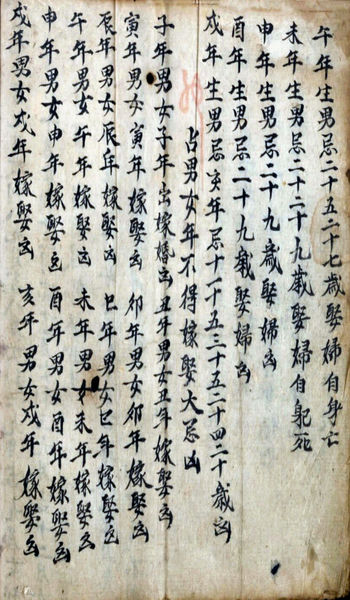 午年生男忌二十五二十七歲娶婦自身亡
未年生男忌二十二十九歲娶婦自躯死
申年生男忌二十九歲娶婦凶
酉年生男忌二十九歲娶婦凶
戌年生男忌亥年忌十一十五三十五二十四二十歲凶
占男女年不得嫁娶大忌凶
子年男女子年出嫁婚凶丑年男女丑年嫁娶凶
寅年男女寅年嫁娶凶卯年男女卯年嫁娶凶
辰年男女辰年嫁娶凶巳年男女巳年嫁娶凶
午年男女午年嫁娶凶未年男女未年嫁娶凶
申年男女申年嫁娶凶酉年男女酉年嫁娶凶
戌年男女戌年嫁娶凶亥年男女戌年嫁娶凶